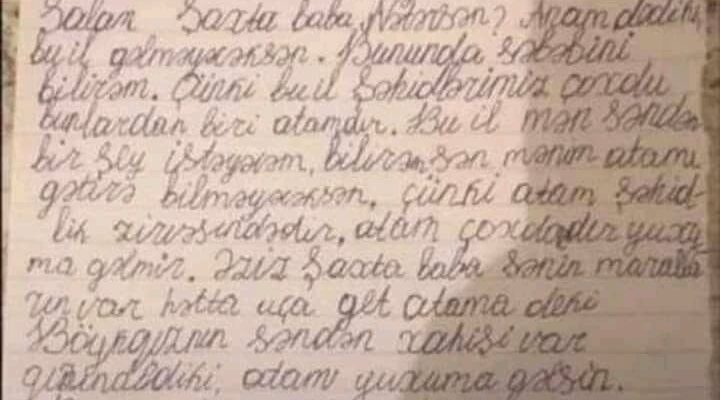 Salam Şaxta baba Nətərsən? Anam dediki,
bu il gəlməyəcəksən. Bununda səbəbini
bilirəm. Çünki bu il Şəhidlərimiz çoxdu
bunlardan biri atamdır. Bu il mən səndən
bir şey istəyəcəm, bilirəm sən mənim atamı
gətirə bilməyəcəksən, çünki atam şəhid-
lik zirvəsindədir, atam çoxdandır yuxu-
ma gəlmir. Əziz Şaxta baba sənin maralla
rın var hətta uça get atama deki
Böyükqızının səndən xahişi var
atam yuxuma gəlsin.